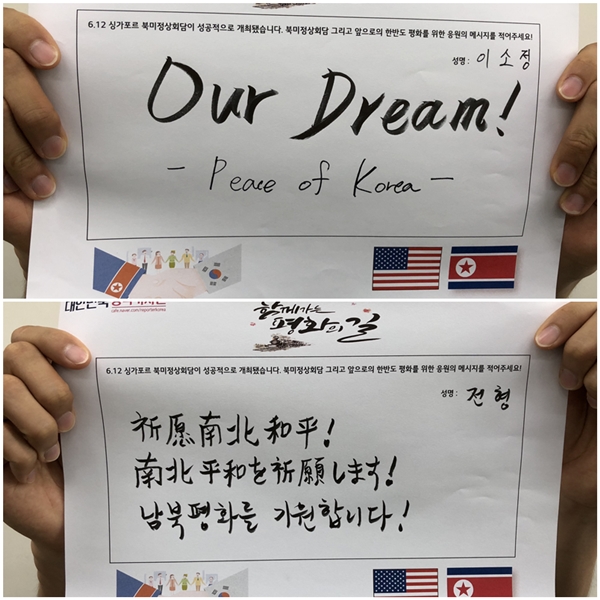 6.12 싱가포르 북미정상회담이 성공적으로 개최됐습니다. 북미정상회담 그리고 앞으로의 한반도 평화를 위한 응원의 메시지를 적어주세요!
성명 : 이소정
Our Dream!
- Peace of Korea -
대한민국
cafe.naver.com/reporterkorea
함께가는
평화의 길
6.12 싱가포르 북미정상회담이 성공적으로 개최됐습니다. 북미정상회담 그리고 앞으로의 한반도 평화를 위한 응원의 메시지를 적어주세요!
성명 : 전형
祈愿南北和平!
南北平和を祈願します!
남북평화를 기원합니다!